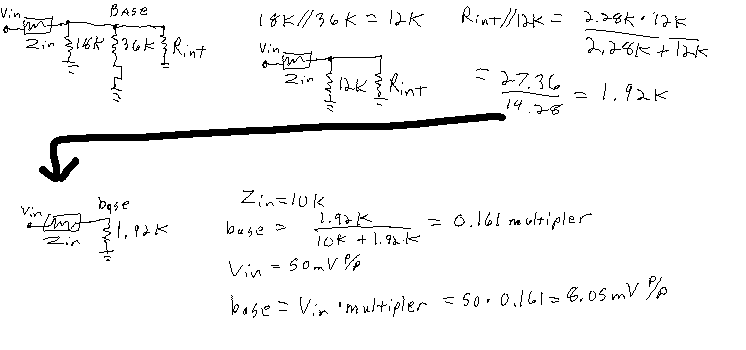 Vin BASE
Zin 18K 36K Rint
18K//36K = 12K
Vin
Zin 12K Rint
Rint//12K = 2.28K · 12K
2.28K + 12K
= 27.36
14.28
= 1.92K
Vin base
Zin 1.92K
Zin=10K
base = 1.92K
10K + 1.92K
= 0.161 multipler
Vin = 50mV P/P
base = Vin · multipler = 50 · 0.161 = 8.05mV P/P